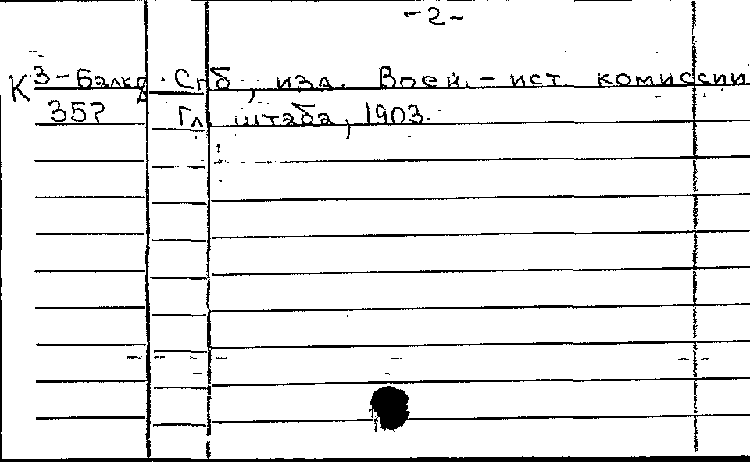 -2-
К 3-Балк. Спб, изд. Воен.-ист комиссии
357 Гл. штаба, 1903.